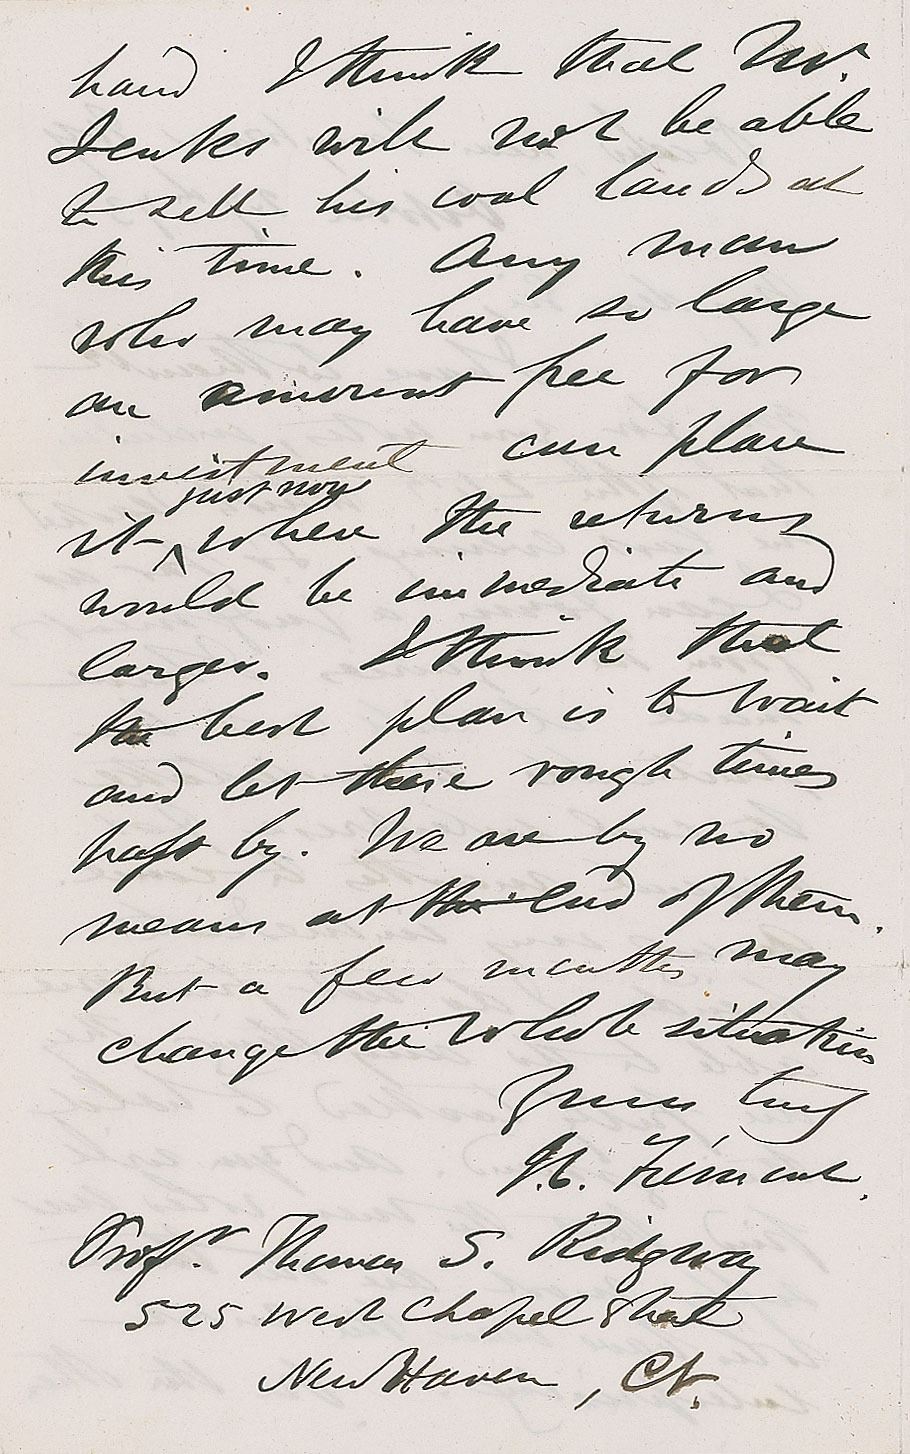 hand I think that Mr.
Jenks will not be able
to sell his coal lands at
this time. Any man
who may have so large
an amount free for
investment can place
just now
it ^ where the returns
would be immediate and
larger. I think that
the best plan is to wait
and let these rough times
pass by. We are by no
means at the end of them.
But a few months may
change the whole situation
Yours truly
J.C. Frémont.
Profr. Thomas S. Ridgway
525 West Chapel Street
New Haven, Ct.